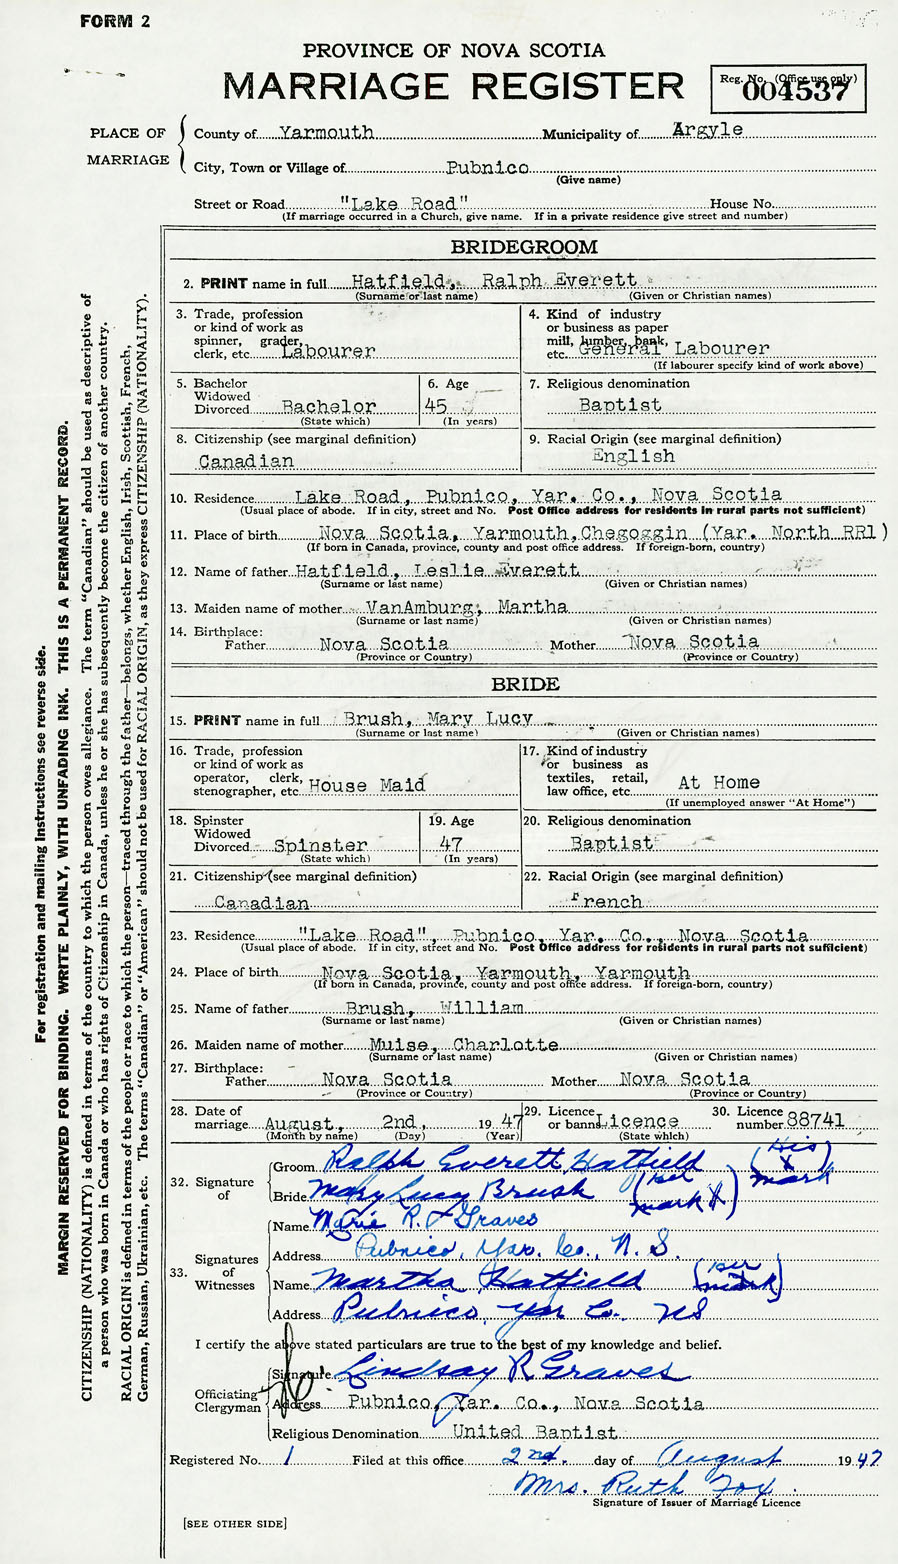 FORM 2
PROVINCE OF NOVA SCOTIA
MARRIAGE REGISTER
Reg. No. (Office use only)
004537
PLACE OF MARRIAGE
County of Yarmouth Municipality of Argyle
City, Town or Village of Pubnico
(Give name)
Street or Road "Lake Road" House No.
(If marriage occurred in a Church, give name. If in a private residence give street and number)
BRIDEGROOM
2. PRINT name in full Hatfield, Ralph Everett
(Surname or last name) (Given or Christian names)
3. Trade, profession
or kind of work as
spinner, grader,
clerk, etc. Labourer
4. Kind of industry
or business as paper
mill, lumber, bank,
etc. General Labourer
(If labourer specify kind of work above)
5. Bachelor
Widowed
Divorced Bachelor
(State which)
6. Age
45
(In years)
7. Religious denomination
Baptist
8. Citizenship (see marginal definition)
Canadian
9. Racial Origin (see marginal definition)
English
10. Residence Lake Road, Pubnico, Yar. Co., Nova Scotia
(Usual place of abode. If in city, street and No. Post Office address for residents in rural parts not sufficient)
11. Place of birth Nova Scotia, Yarmouth, Chegoggin (Yar. North RR1)
(If born in Canada, province, county and post office address. If foreign-born, country)
12. Name of father Hatfield, Leslie Everett
(Surname or last name) (Given or Christian names)
13. Maiden name of mother VanAmburg, Martha
(Surname or last name) (Given or Christian names)
14. Birthplace:
Father Nova Scotia Mother Nova Scotia
(Province or Country) (Province or Country)
BRIDE
15. PRINT name in full Brush, Mary Lucy
(Surname or last name) (Given or Christian names)
16. Trade, profession
or kind of work as
operator, clerk,
stenographer, etc House Maid
17. Kind of industry
or business as
textiles, retail,
law office, etc. At Home
(If unemployed answer "At Home")
18. Spinster
Widowed
Divorced Spinster
(State which)
19. Age
47
(In years)
20. Religious denomination
Baptist
21. Citizenship (see marginal definition)
Canadian
22. Racial Origin (see marginal definition)
french
23. Residence "Lake Road", Pubnico, Yar. Co., Nova Scotia
(Usual place of abode. If in city, street and No. Post Office address for residents in rural parts not sufficient)
24. Place of birth Nova Scotia, Yarmouth, Yarmouth
(If born in Canada, province, county and post office address. If foreign-born, country)
25. Name of father Brush, William
(Surname or last name) (Given or Christian names)
26. Maiden name of mother Muise, Charlotte
(Surname or last name) (Given or Christian names)
27. Birthplace:
Father Nova Scotia Mother Nova Scotia
(Province or Country) (Province or Country)
28. Date of
marriage August, 2nd, 1947
(Month by name) (Day) (Year)
29. Licence
or banns Licence
(State which)
30. Licence
number 88741
32. Signature of
Groom Ralph Everett Hatfield (His X mark)
Bride Mary Lucy Brush (Her mark X)
33. Signatures of Witnesses
Name Marie R. Graves
Address Pubnico, Yar. Co., N. S.
Name Martha Hatfield (her mark)
Address Pubnico, Yar Co. NS
I certify the above stated particulars are true to the best of my knowledge and belief.
Officiating Clergyman
Signature Lindsay R Graves
Address Pubnico, Yar. Co., Nova Scotia
Religious Denomination United Baptist
Registered No. 1 Filed at this office 2nd. day of August 1947
Mrs. Ruth Fox
Signature of Issuer of Marriage Licence
[SEE OTHER SIDE]
For registration and mailing instructions see reverse side.
MARGIN RESERVED FOR BINDING. WRITE PLAINLY, WITH UNFADING INK. THIS IS A PERMANENT RECORD.
CITIZENSHIP (NATIONALITY) is defined in terms of the country to which the person owes allegiance. The term "Canadian" should be used as descriptive of
a person who was born in Canada or who has rights of Citizenship in Canada, unless he or she has subsequently become the citizen of another country.
RACIAL ORIGIN is defined in terms of the people or race to which the person—traced through the father—belongs, whether English, Irish, Scottish, French,
German, Russian, Ukrainian, etc. The terms "Canadian" or "American" should not be used for RACIAL ORIGIN, as they express CITIZENSHIP (NATIONALITY).